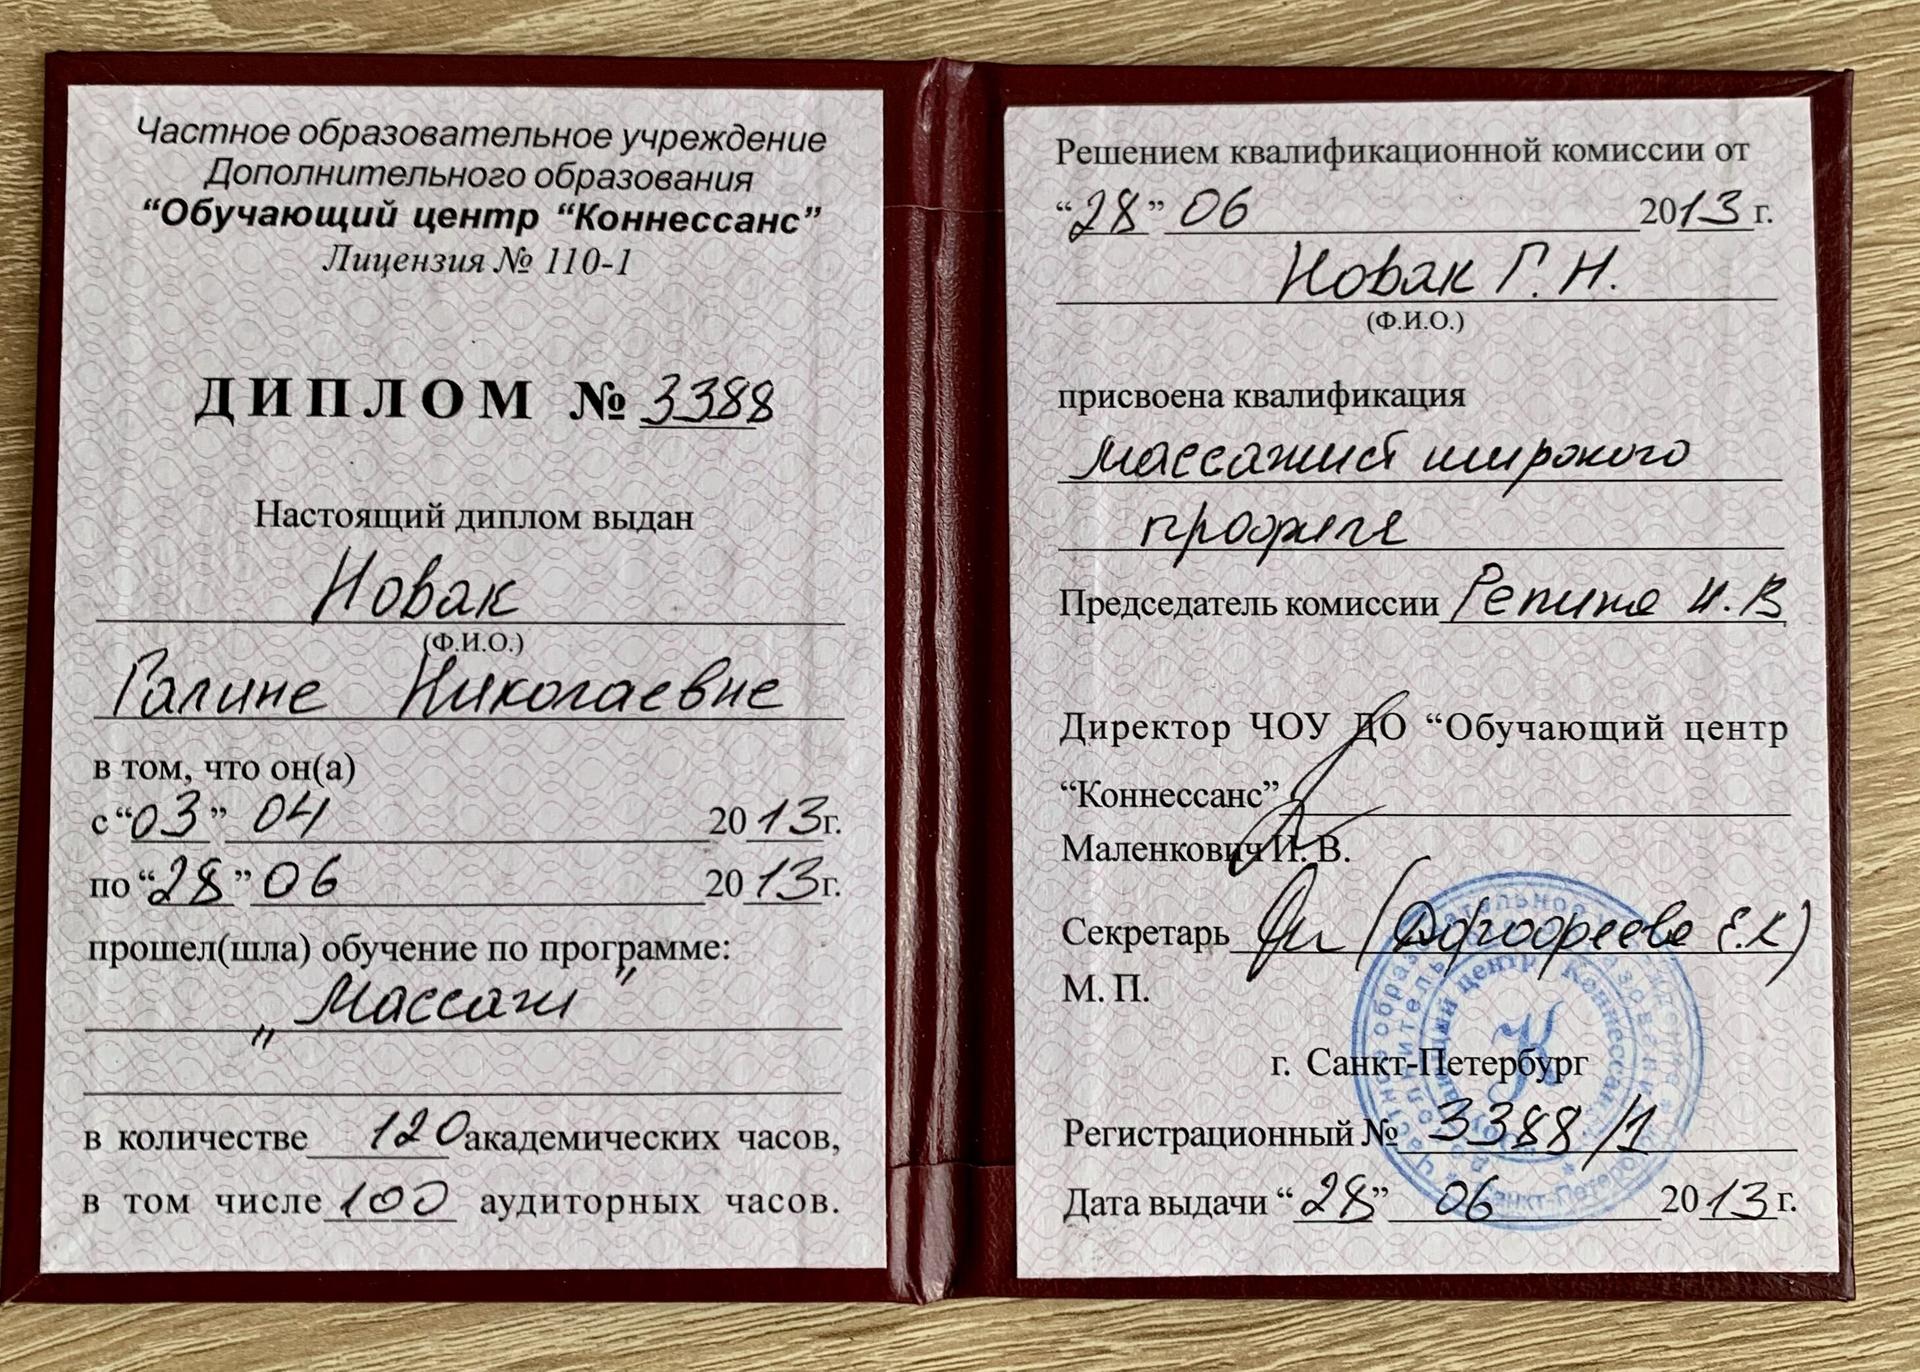 Частное образовательное учреждение
Дополнительного образования
“Обучающий центр “Коннессанс”
Лицензия № 110-1
ДИПЛОМ № 3388
Настоящий диплом выдан
Новак
(Ф.И.О.)
Галине Николаевне
в том, что он(а)
с “03” 04 2013г.
по “28” 06 2013г.
прошел(шла) обучение по программе:
„Массаж”
в количестве 120 академических часов,
в том числе 100 аудиторных часов.
Решением квалификационной комиссии от
“28” 06 2013 г.
Новак Г. Н.
(Ф.И.О.)
присвоена квалификация
массажист широкого
профиля
Председатель комиссии Репина И. В
Директор ЧОУ ДО “Обучающий центр
“Коннессанс”
Маленкович И. В.
Секретарь Е.К)
М. П.
г. Санкт-Петербург
Регистрационный № 3388/1
Дата выдачи “28” 06 2013г.